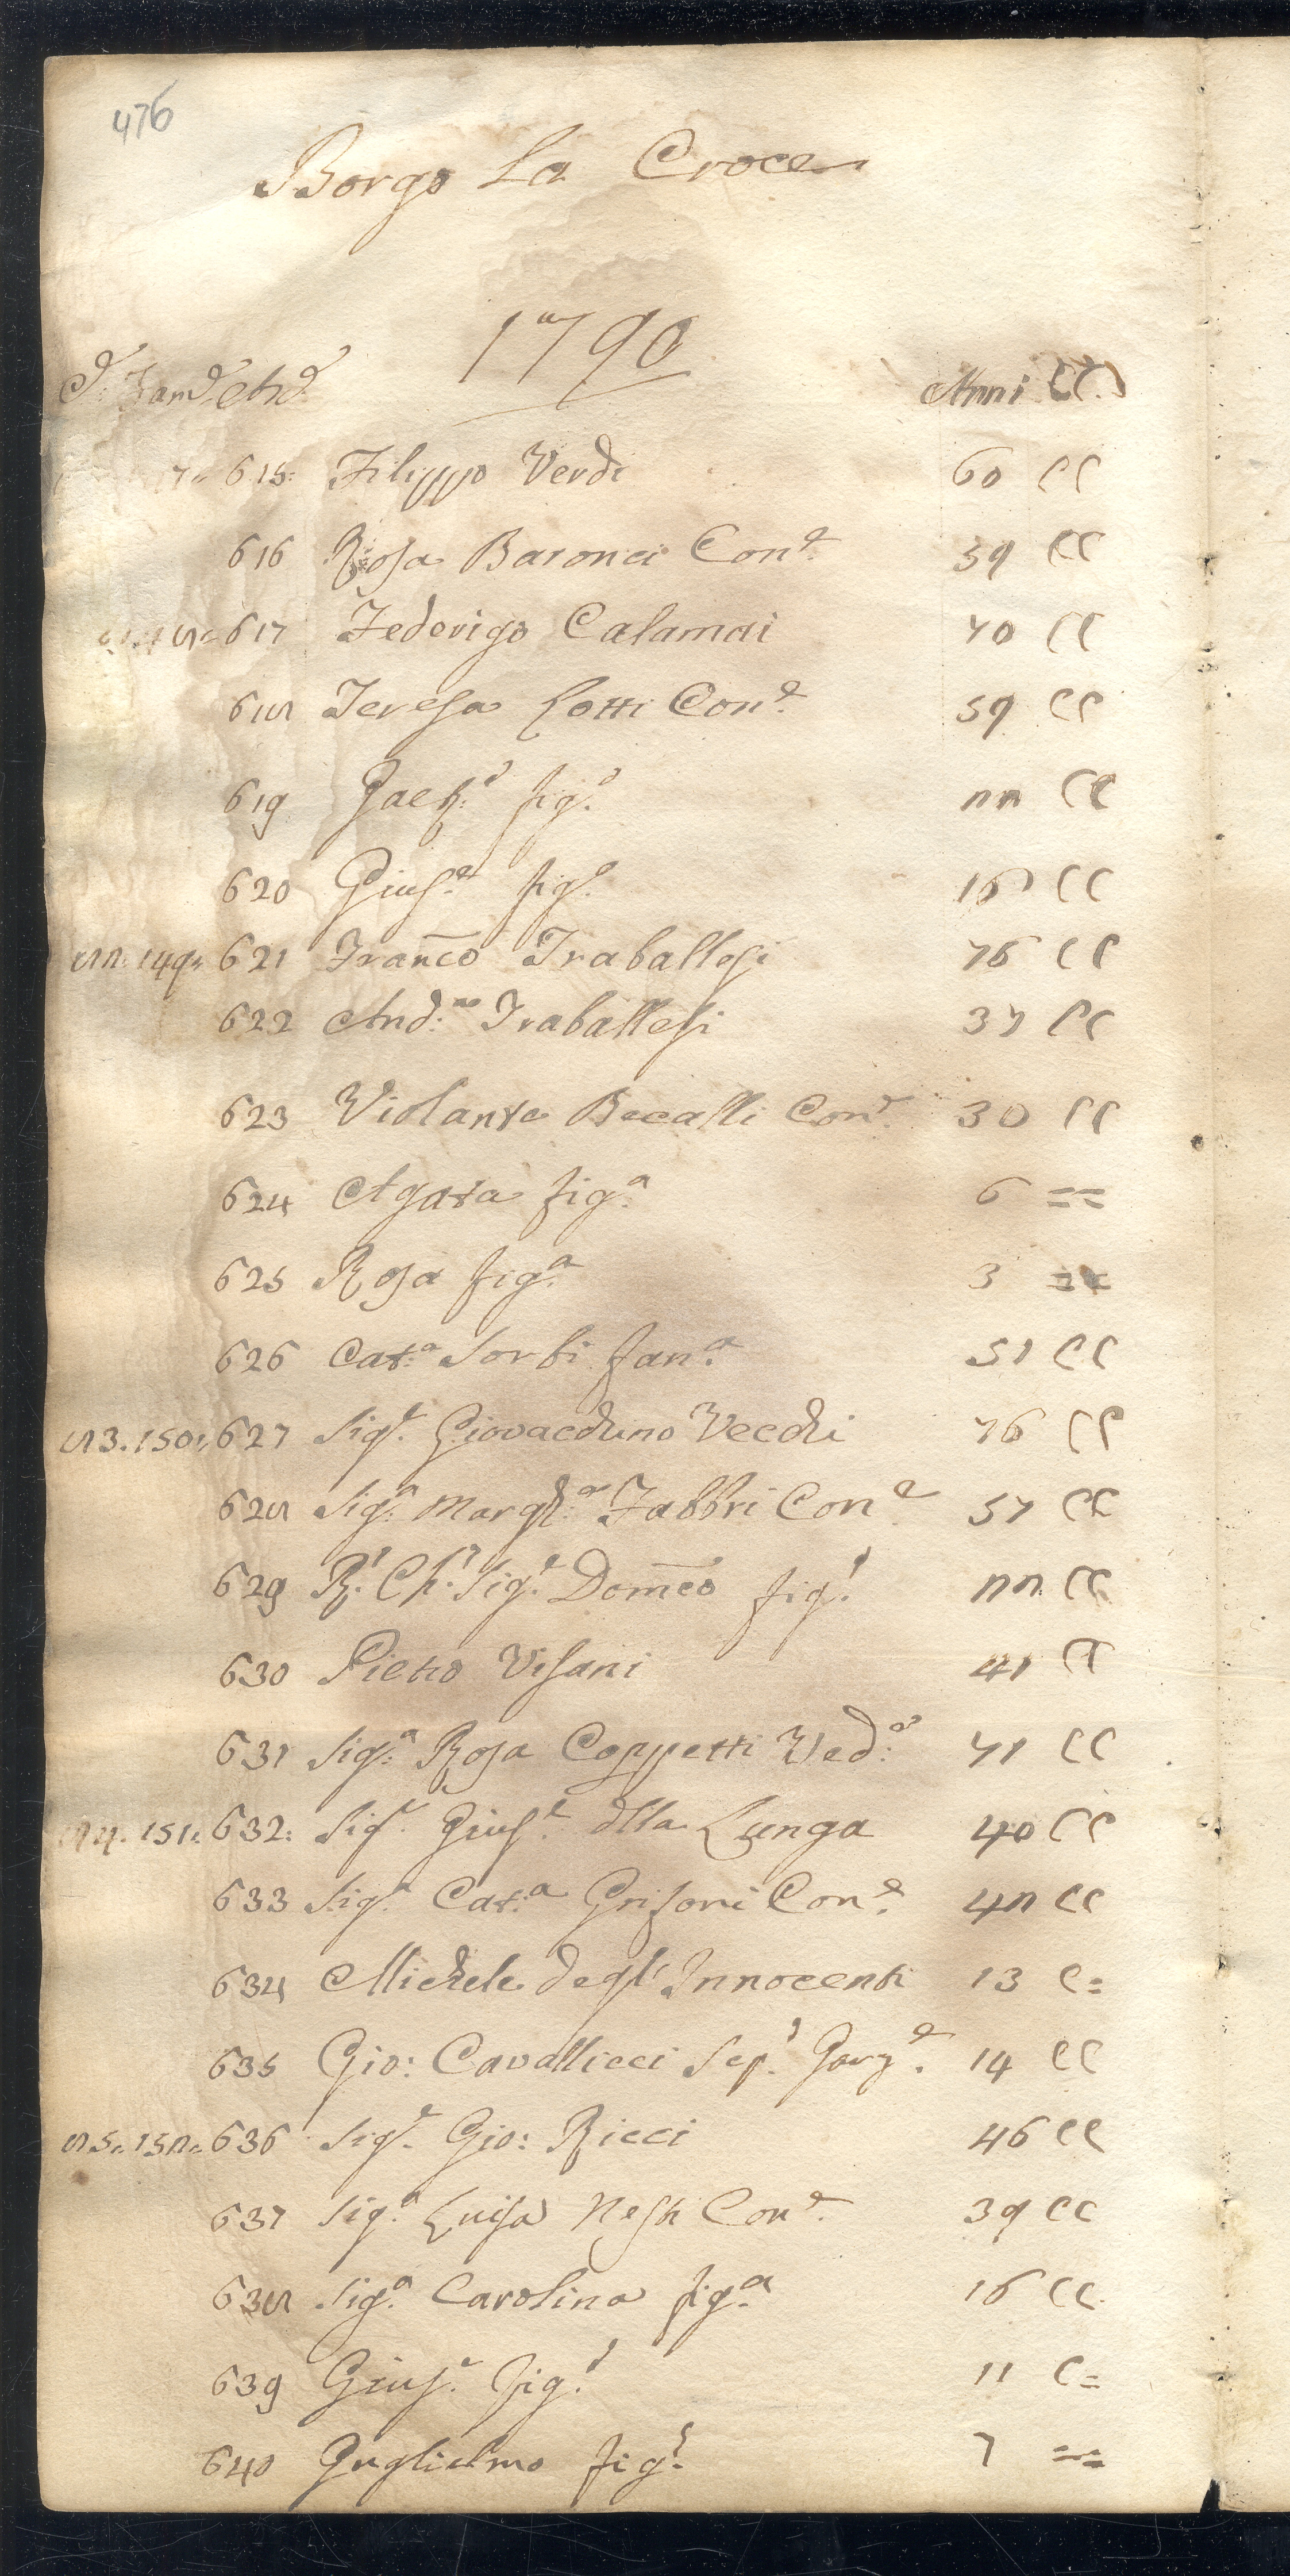 476
Borgo La Croce
1790
Anni CC
615: Filippo Verdi 60 CC
616 Rosa Baronci Con.e 59 CC
617 Federigo Calamai 70 CC
618 Teresa Lotti Con.e 59 CC
619 Gaet.o fig.o 22 CC
620 Gius.e fig.o CC
82. 149. 621 Franco Traballesi 76 CC
622 And.a Traballesi 37 CC
623 Violante Becalli Con.e 30 CC
624 Agata fig.a 6 ==
625 Rosa fig.a 3 ==
626 Cat.a Sorbi fan.a 51 CC
83. 150. 627 Sig.e Giovacchino Vecchi 76 CC
628 Sig.a Margh.a Fabbri Con.e 57 CC
629 R. Ch. Sig.e Domco fig.o 22 CC
630 Pietro Visani 41 CC
631 Sig.a Rosa Coppetti Ved.a 71 CC
84. 151. 632: Sig.e Gius.e dlla Lunga 40 CC
633 Sig.a Cat.a Grisoni Con.e 42 CC
634 Michele degl'Innocenti 13 C=
635 Gio: Cavallicci Garz.e 14 CC
85. 152. 636 Sig.e Gio: Ricci 46 CC
637 Sig.a Luisa Nesti Con.e 39 CC
638 Sig.a Carolina fig.a 16 CC
639 Gius.e fig.o 11 C=
640 Guglielmo fig.o 7 ==